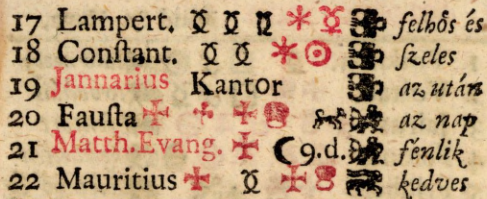 17 Lampert. felhős és
18 Conſtant. ſzeles
19 Jannarius Kantor az után
20 Fauſta az nap
21 Matth.Evang. 9.d. fénlik
22 Mauritius kedves